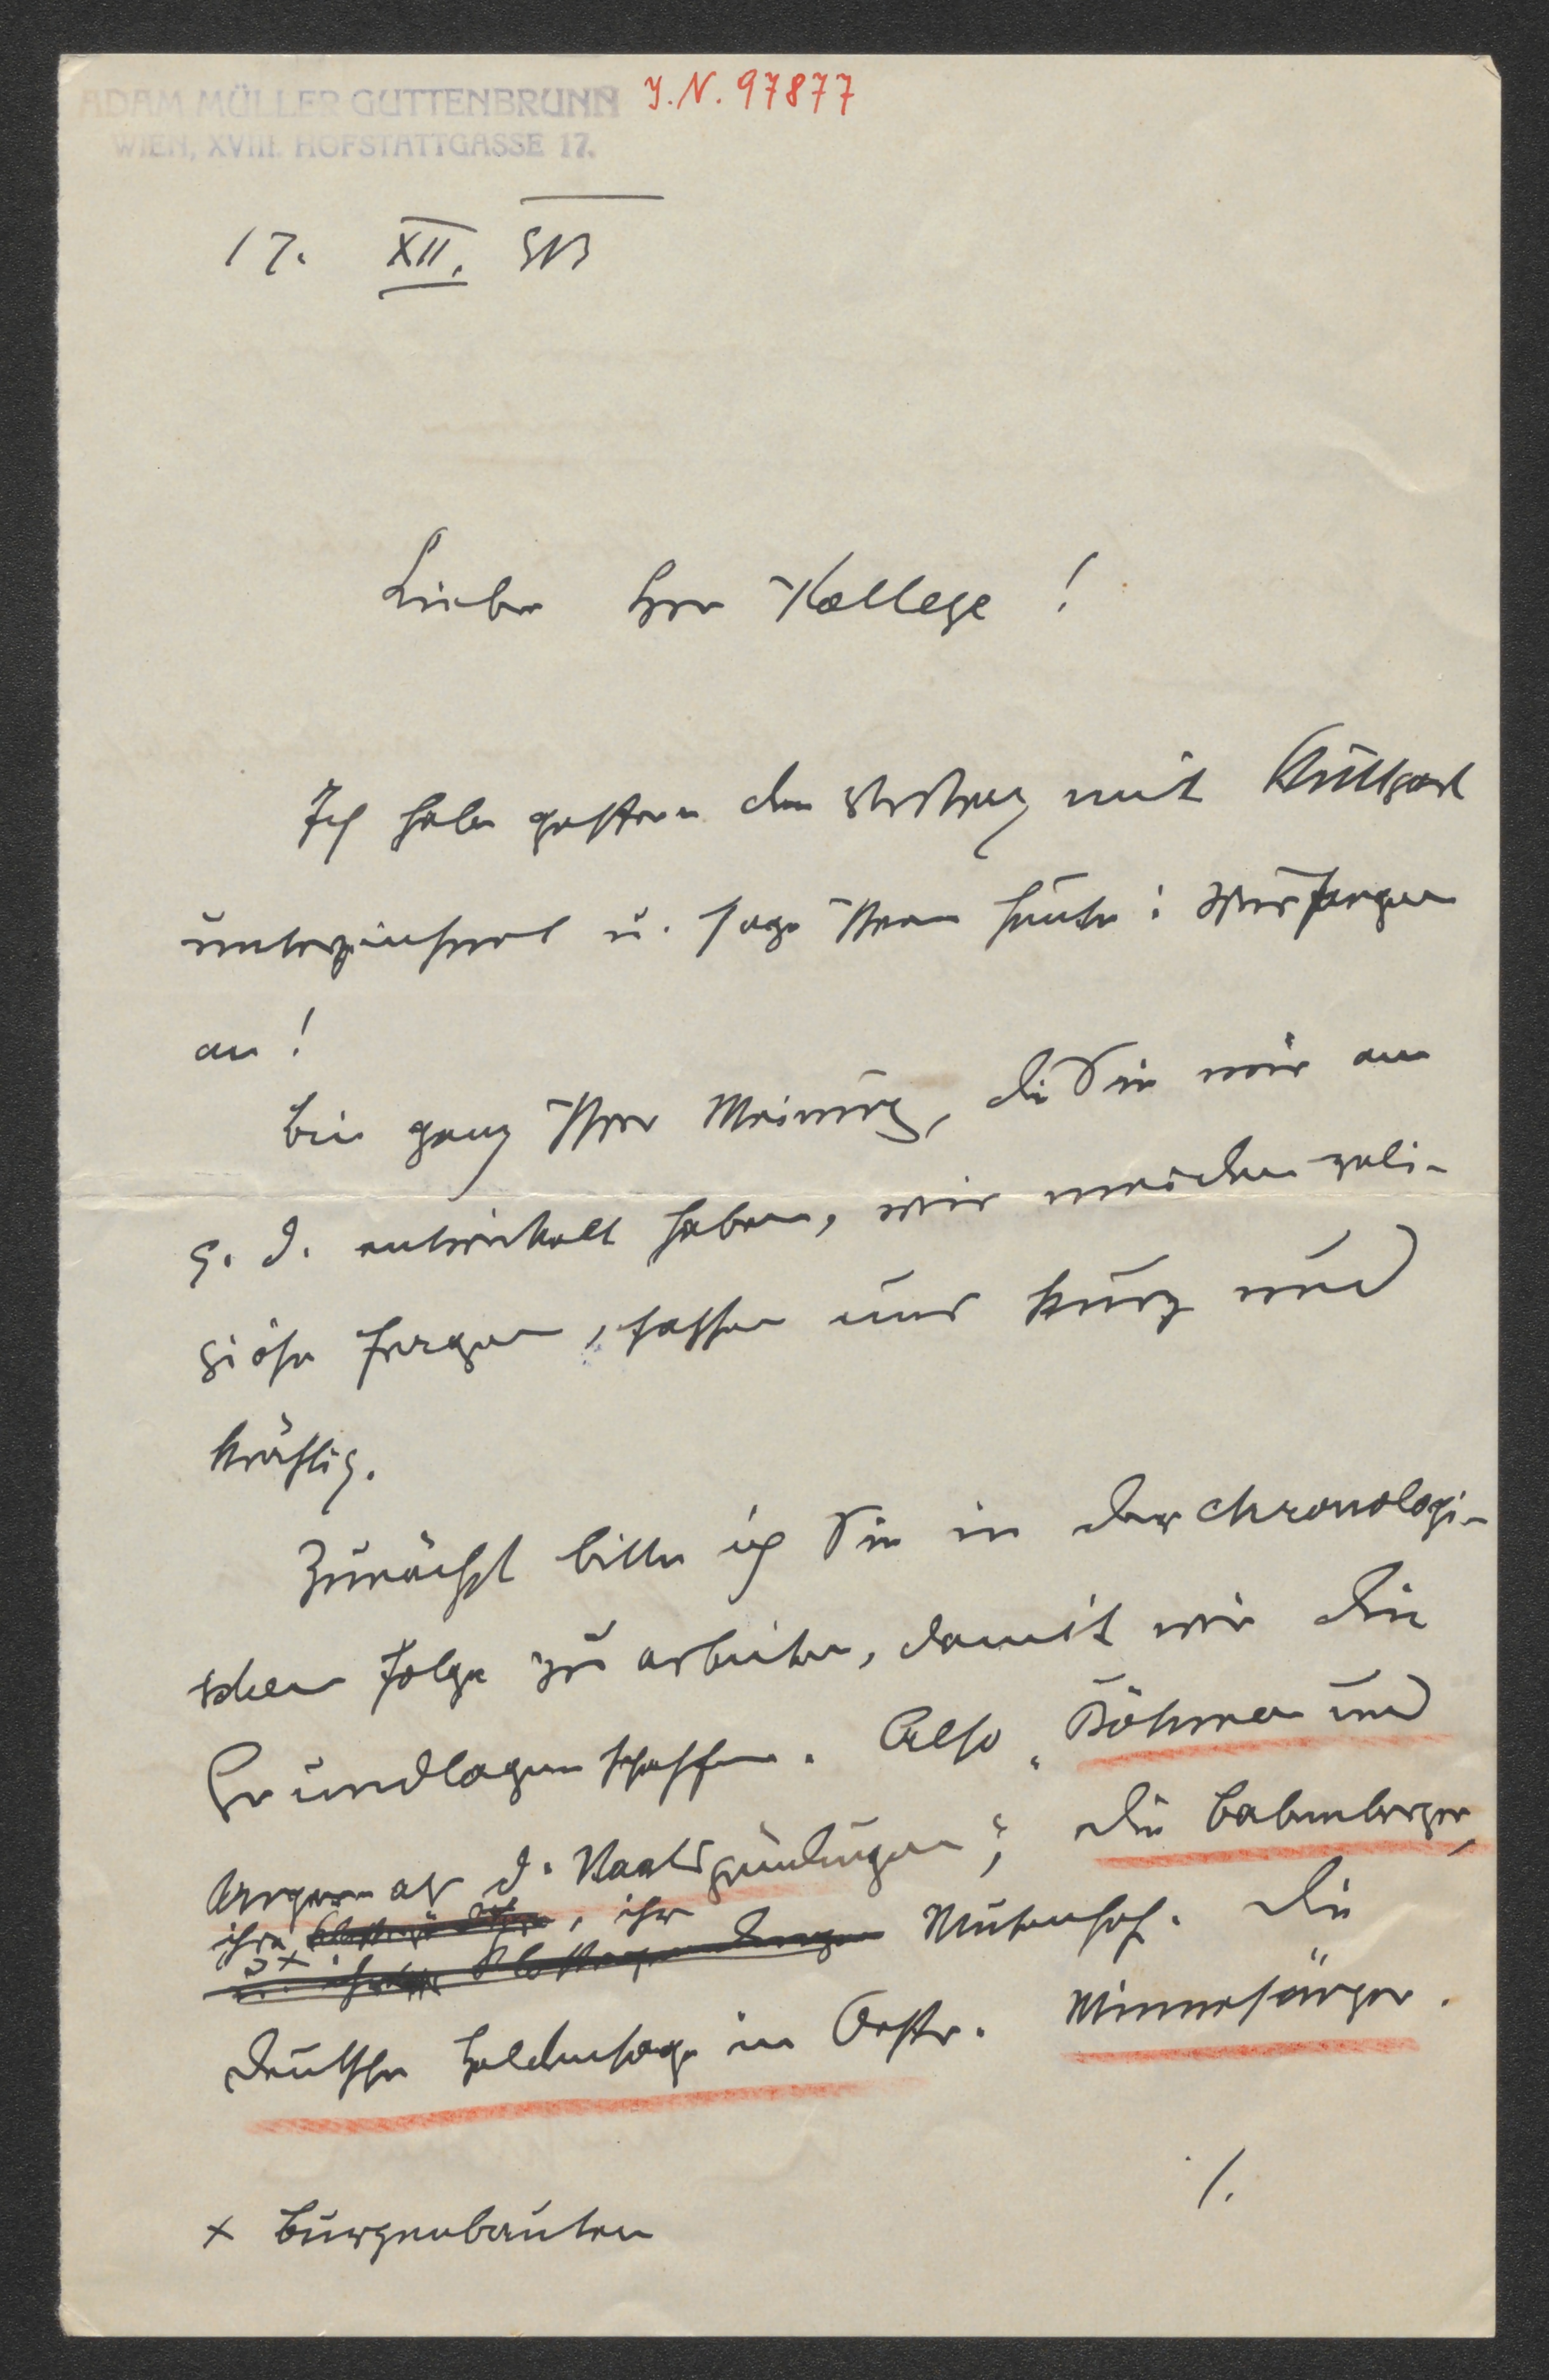 ADAM MÜLLER GUTTENBRUNN
WIEN, XVIII. HOFSTATTGASSE 17.
J.N. 97877
17. XII. 913
Lieber Herr Kollege!
Ich habe gestern den Vertrag mit Stuttgart
unterzeichnet u. sage Ihnen heute: Wir fangen
an!
Bin ganz Ihrer Meinung, die Sie mir am
9. d. entwickelt haben, wir meiden reli-
giöse Fragen, fassen uns kurz und
kräftig.
Zunächst bitte ich Sie in der chronologi-
schen Folge zu arbeiten, damit wir die
Grundlagen schaffen. Also „Böhmen und
Ungarn als d. Staatsgründungen; die Babenberger,
ihre x, ihr
Musenhof. Die
deutsche Heldensage in Oestr. Minnesänger.
/.
x Burgenbauten